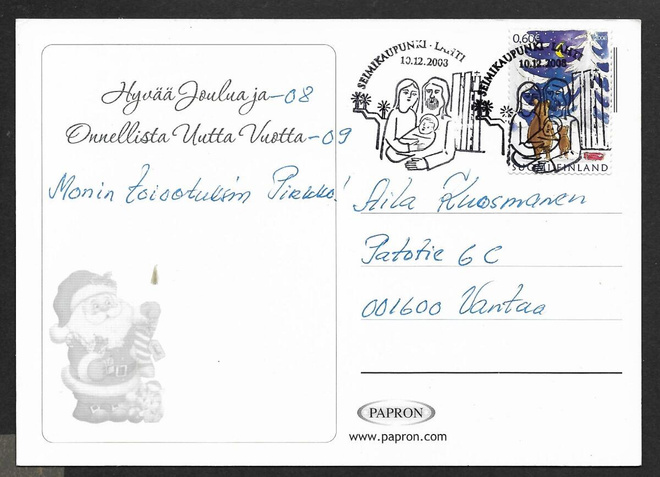 Hyvää Joulua ja -08
Onnellista Uutta Vuotta -09
Monin toivotuksin Pirkko!
SEIMIKAUPUNKI · LAHTI
10.12.2008
SEIMIKAUPUNKI · LAHTI
10.12.2008
0,60€
SUOMI FINLAND
Aila Kuosmanen
Patotie 6 C
001600 Vantaa
PAPRON
www.papron.com